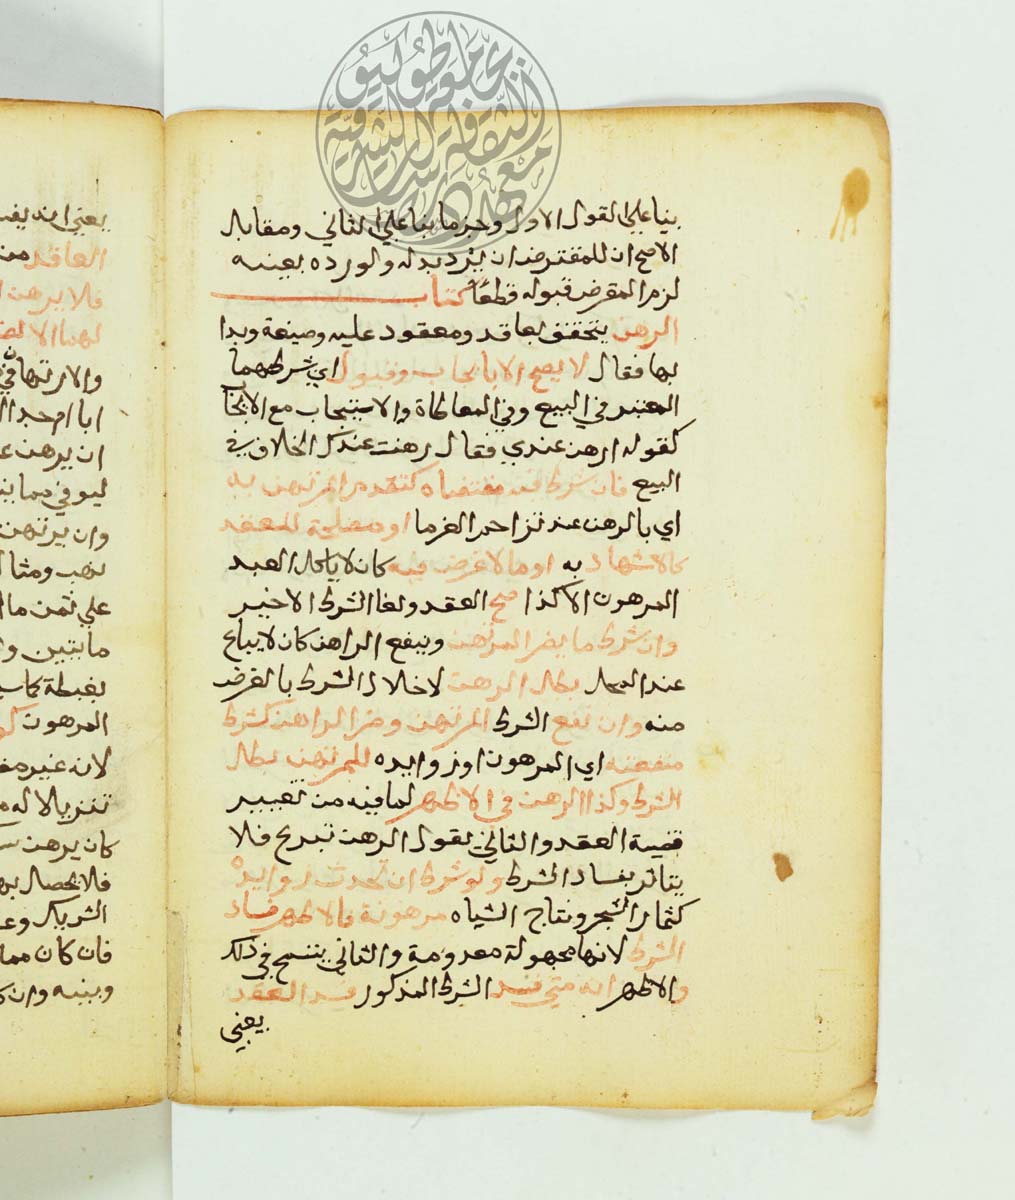 معهد الثقافة والدراسات الشرقية جامعة طوكيو
بنا علي القول الاول وجزما بنا علي الثاني ومقابل
الاصح ان للمقترض ان يرد بدله ولو رده بعينه
لزم المقرض قبوله قطعا كتاب
الرهن يتحقق بعاقد ومعقود عليه وصيغة وبدا
بها فقال لا يصح الا بايجاب وقبول اي شرطهما
المعتبر في البيع وفي المعاطاة والاستيجاب مع الايجاب
كقوله ارهن عندي فقال رهنت عندك الخلاف في
البيع فان شرط فيه مقتضاه كتقدم المرتهن به
اي بالرهن عند تزاحم الغرما او مصلحة للعقد
كالاشهاد به او ما لا غرض فيه كان لا ياكل العبد
المرهون الا كذا صح العقد ولغا الشرط الاخير
وان شرط ما يضر المرتهن وينفع الراهن كان لا يباع
عند المحل بطل الرهن لاخلال الشرط بالغرض
منه وان نفع الشرط المرتهن وضر الراهن كشرط
منفعته اي المرهون او زوايده للمرتهن بطل
الشرط وكذا الرهن في الاظهر لما فيه من تغيير
قضية العقد والثاني يقول الرهن تبرع فلا
يتاثر بفساد الشرط ولو شرط ان تحدث زوايده
كثمار الشجر ونتاج الشياه مرهونة فالاظهر فساد
الشرط لانها مجهولة معدومة والثاني يتسمح في ذلك
والاظهر انه متي فسد الشرط المذكور فسد العقد
يعني
يعني انه يفسد
العاقد من
فلا يرهن
لهما الا لضر
والارتهان في
ابا ام جد ا
ان يرهن ع
ليوفي مما
وان يرتهن
نهب ومثال
علي ثمن ما ا
مايتين و
بغبطة كما
المرهون
لانه غير مف
تنزيلا له م
كان يرهن
فلا يحصل به
الشريك وع
فان كان مما
وبينه وان ك